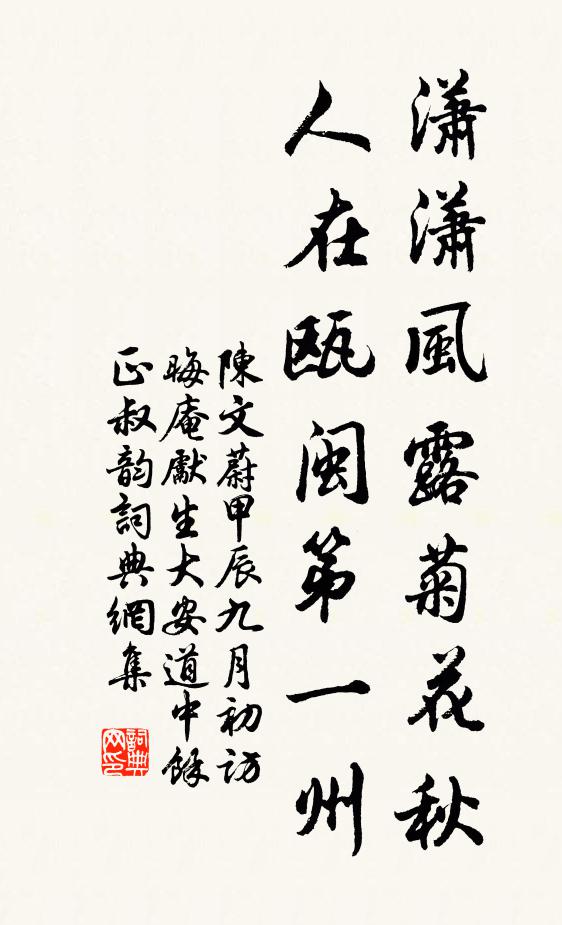 瀟瀟風露菊花秋
人在甌閩第一州
陳文蔚甲辰九月初訪
晦庵獻生大安道中餘
正叔韵詞典網集
詞典
网印